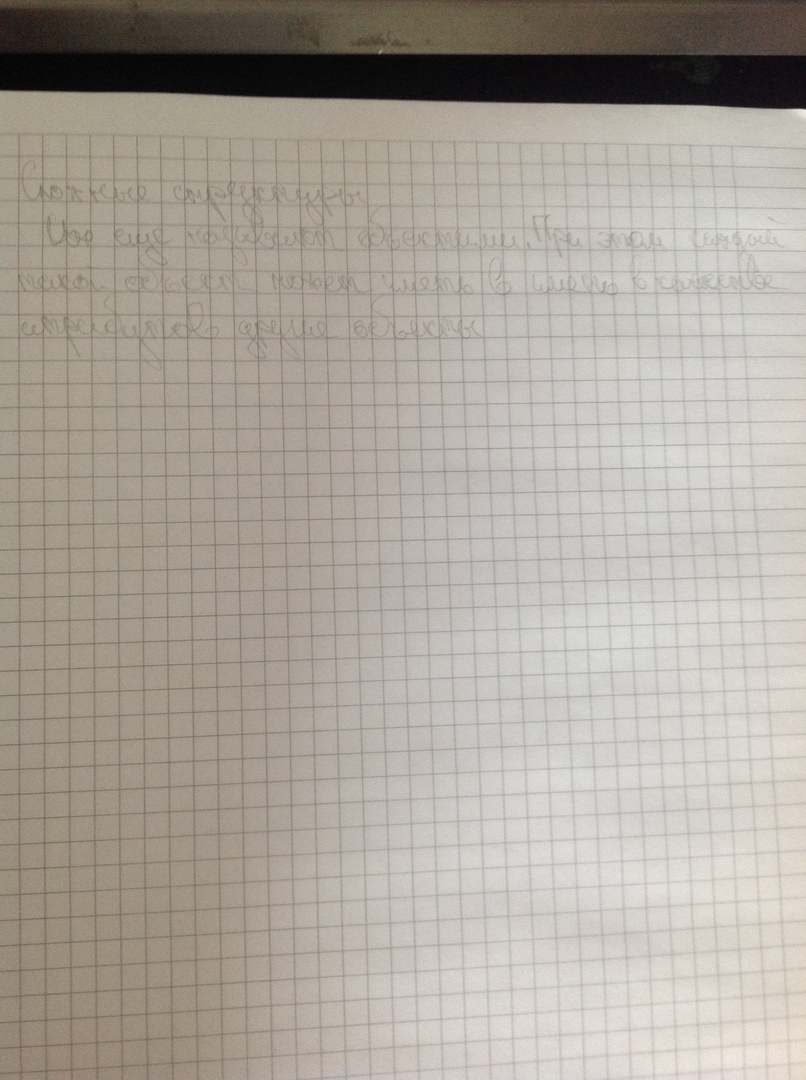 Сложные структуры
Их еще называют объектами. При этом каждый
такой объект может иметь в в качестве
атрибутов другие объекты